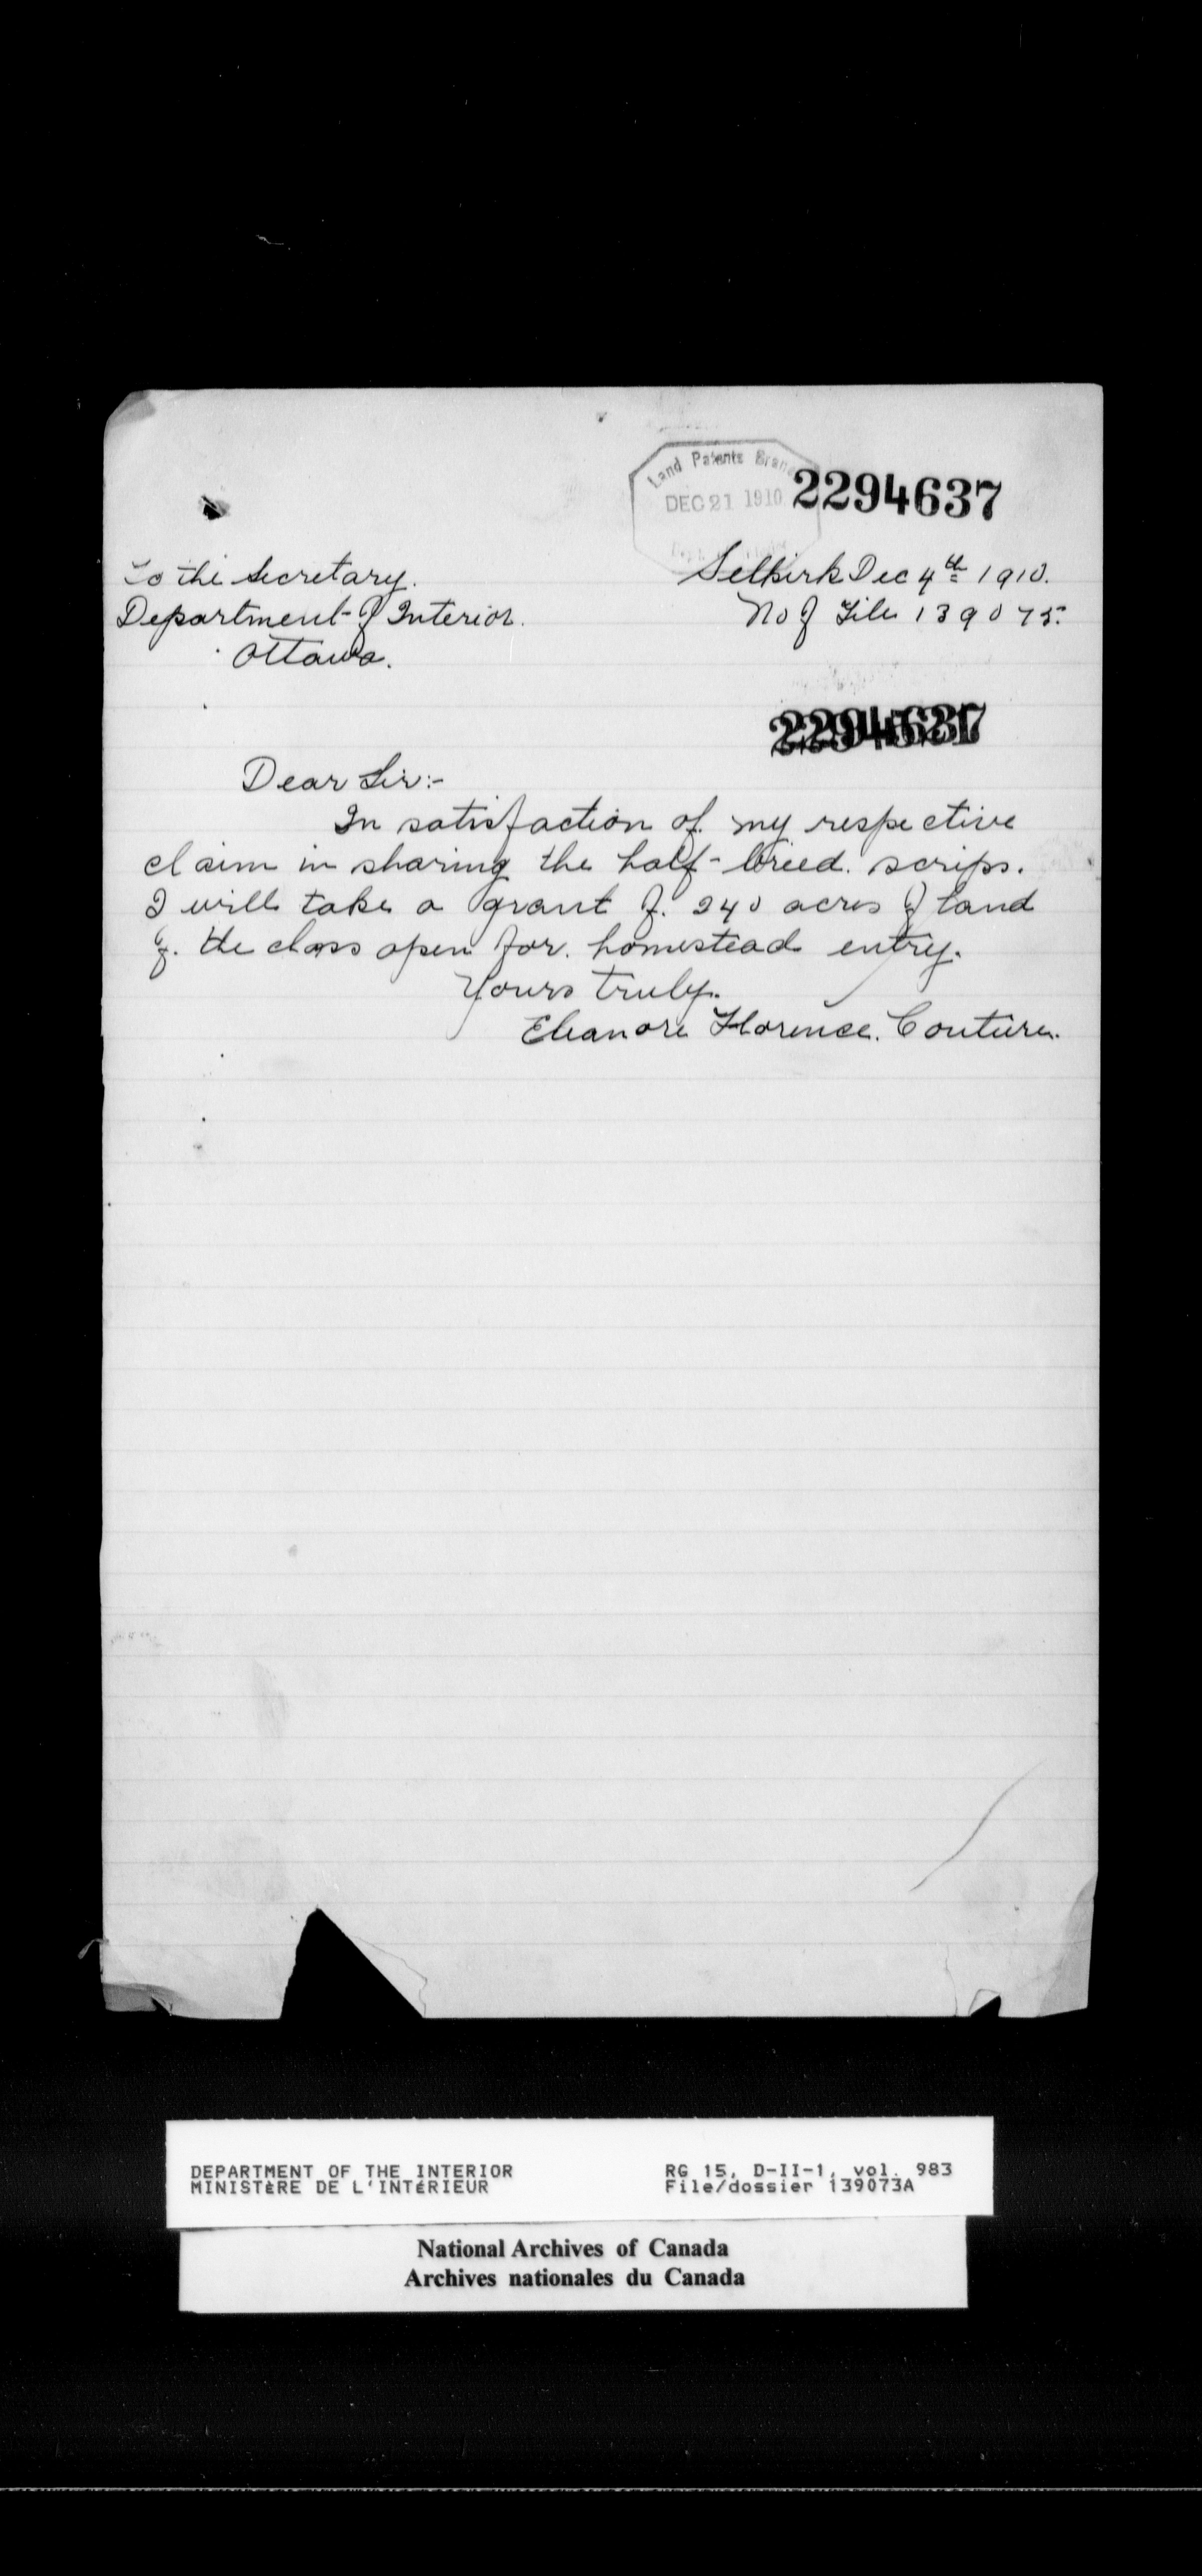 Land Patents Branch
DEC 21 1910
2294637
To the Secretary.
Department of Interior.
Ottawa.
Selkirk Dec 4th 1910.
No of File 139075.
2294637
Dear Sir:-
In satisfaction of my respective
claim in sharing the half-breed. scrips.
I will take a grant of. 240 acres of land
of. the class open for. homestead entry.
Yours truly.
Eleanore Florence. Couture.
DEPARTMENT OF THE INTERIOR
MINISTÈRE DE L'INTÉRIEUR
RG 15, D-II-1, vol. 983
File/dossier 139073A
National Archives of Canada
Archives nationales du Canada